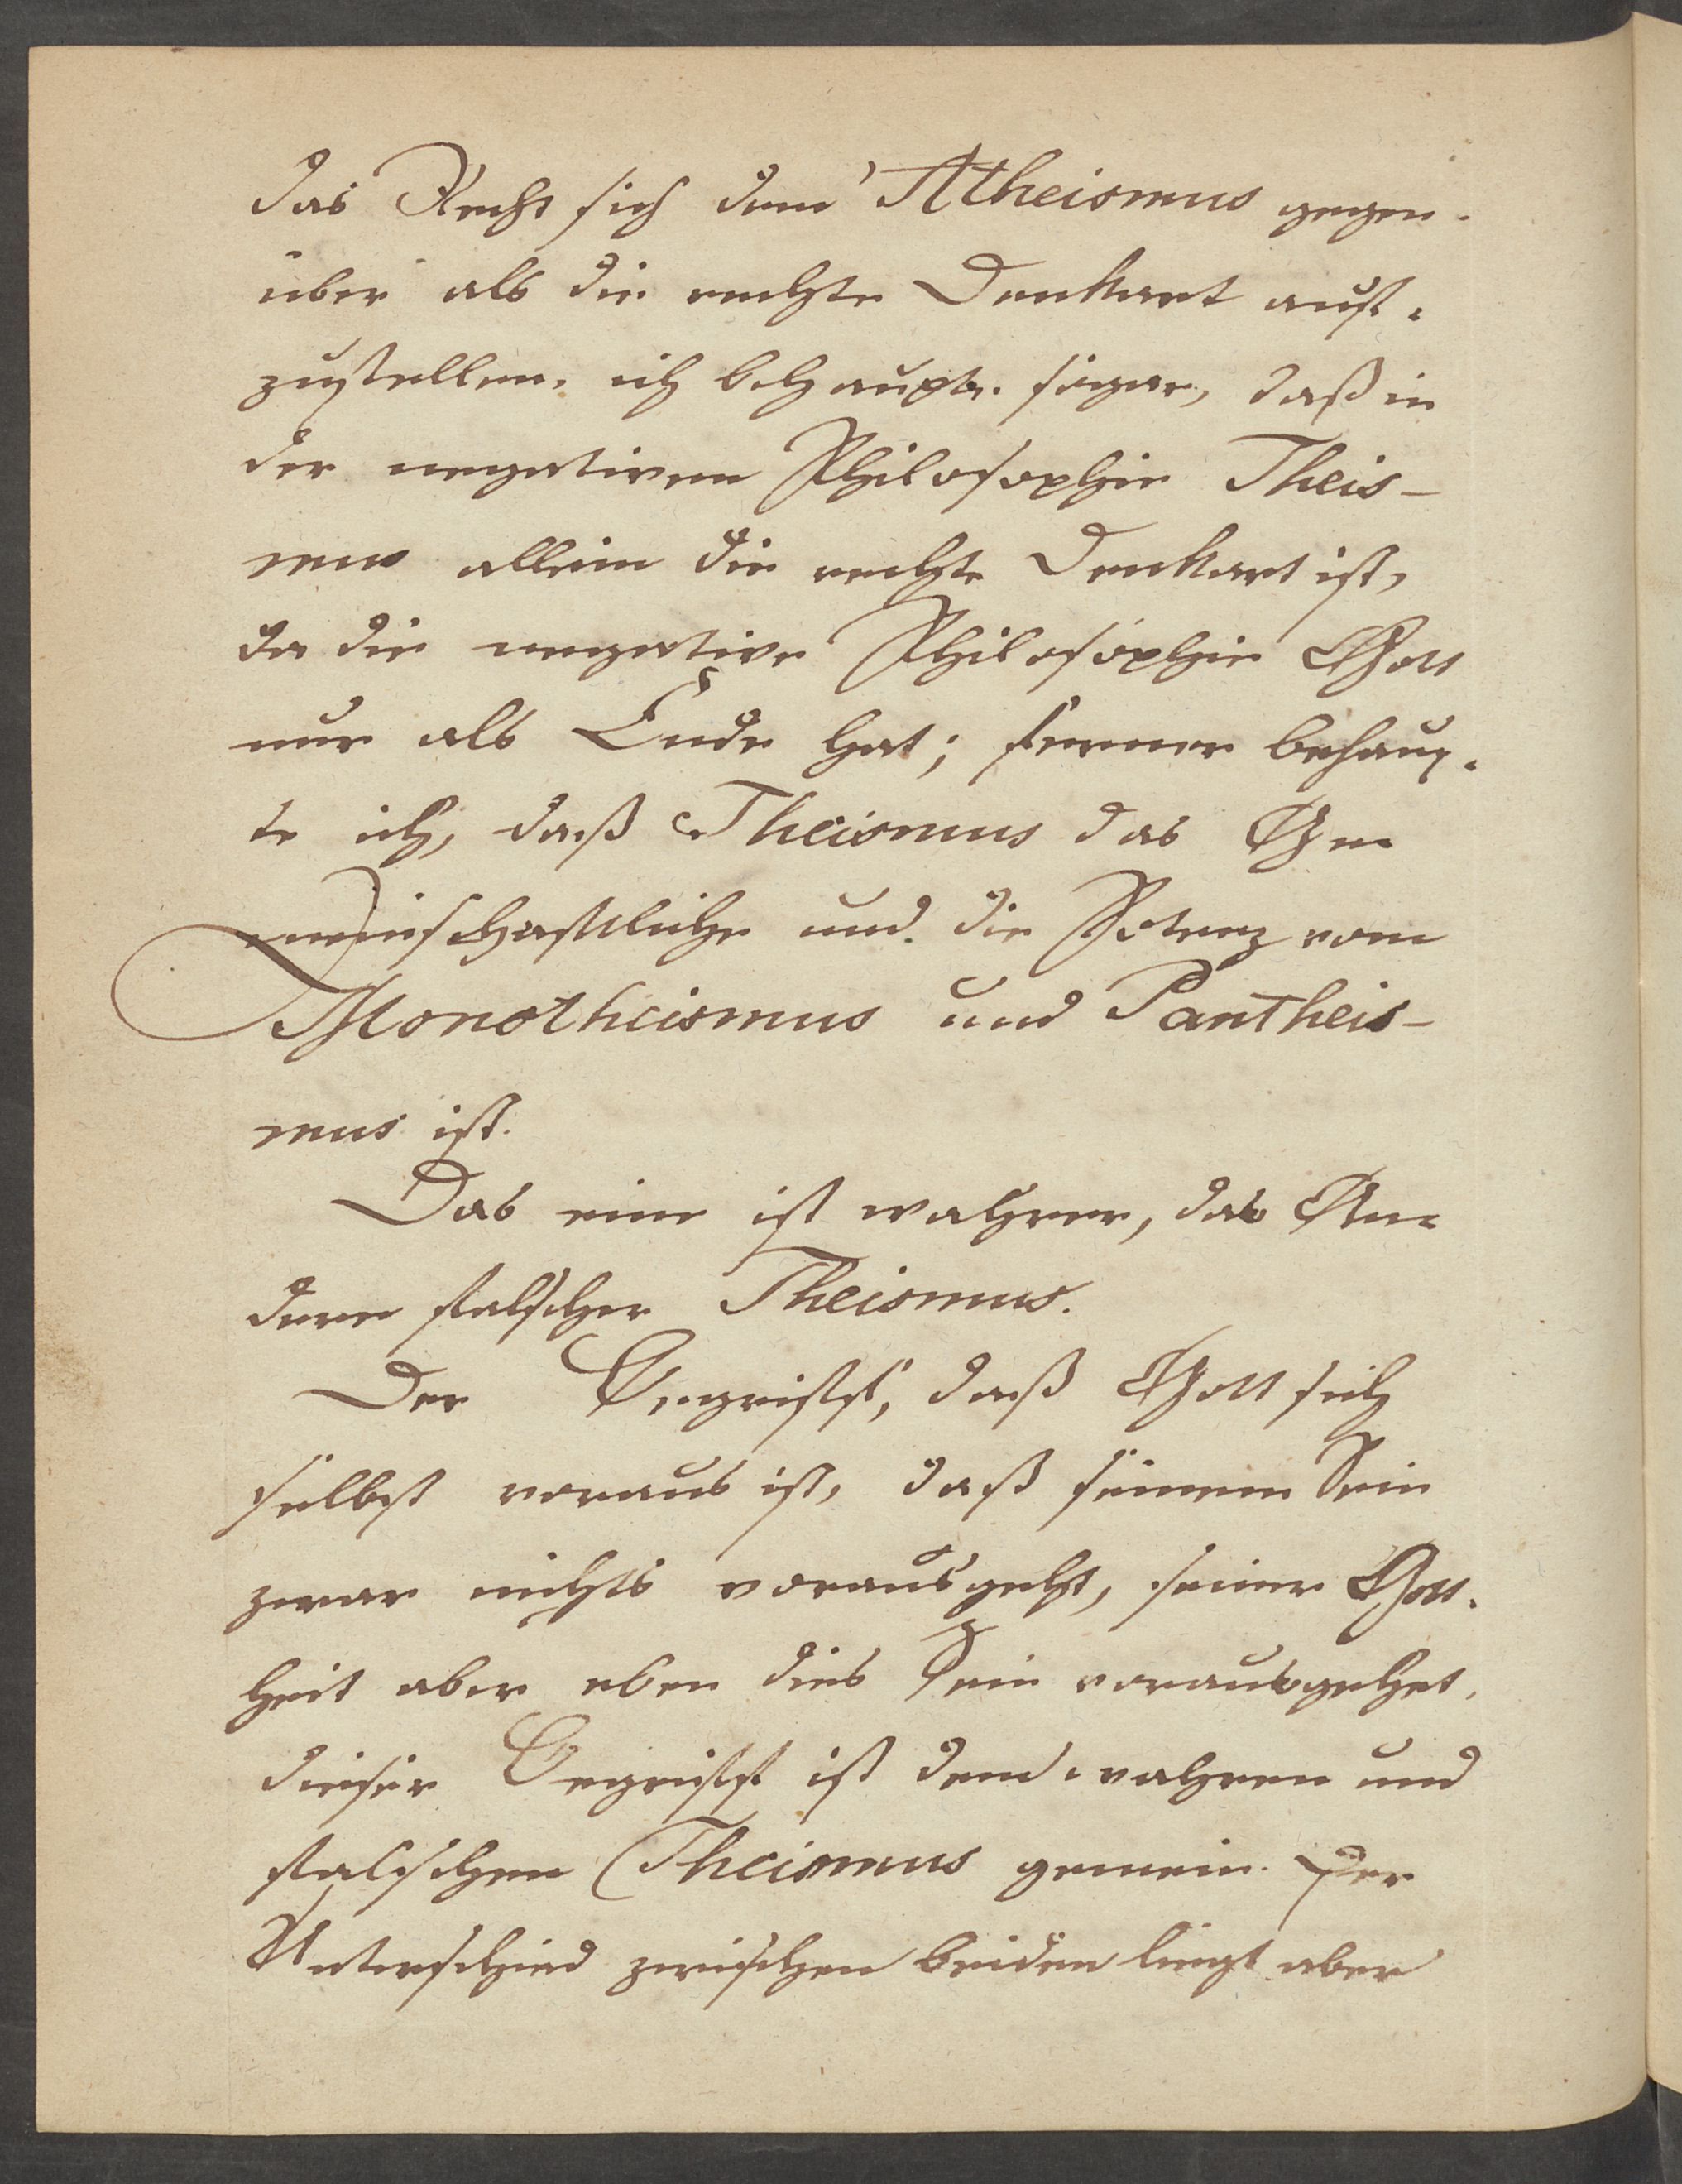 das Recht sich dem Atheismus gegen-
über als die rechte Denkart auf-
zustellen. ich behaupte sogar, daß in
der negativen Philosophie Theis-
mus allein die rechte Denkart ist,
da die negative Philosophie Gott
nur als Ende hat; ferner behaup-
te ich, daß Theismus das Ge-
meinschaftliche und die Potenz vom
Monotheismus und Pantheis-
mus ist.
Das eine ist wahrer, das An-
dere falscher Theismus.
Der Begriff, daß Gott sich
selbst voraus ist, daß seinem Sein
zwar nichts vorausgeht, seiner Gott-
heit aber eben dies Sein vorausgehet,
dieser Begriff ist dem wahren und
falschen Theismus gemein. Der
Unterschied zwischen beiden liegt aber